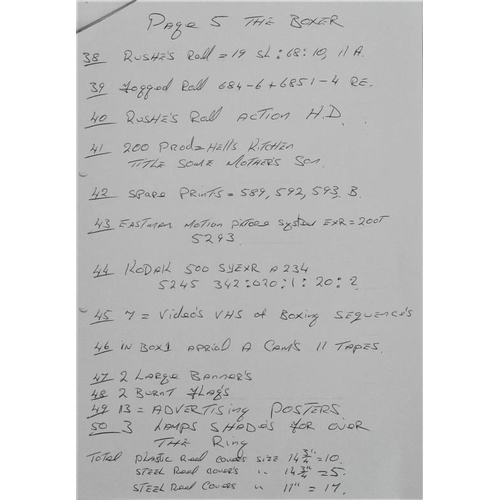 Page 5 THE BOXER
38 RUSHE'S Roll = 19 SL: 68: 10, 11 A.
39 Fogged Roll 684-6 + 6851-4 RE.
40 RUSHE'S Roll ACTION H.D.
41 200 Prod= Hells KITCHEN
TITLE SOME MOTHER'S SON.
42 SPARE PRINTS = 589, 592, 593 B.
43 EASTMAN MOTION PICTORE System EXR = 200T
5293
44 KODAK 500 A 234
5245 342:020:1: 20: 2
45 7 = Video's VHS of Boxing SEQUENCE'S
46 IN BOX1 APRIOL A CAM'S 11 TAPES.
47 2 LARGE BANNER'S
48 2 BURNT FLAG'S
49 13 = ADVERTISING POSTERS
50 3 LAMPS SHADE'S FOR OVER
THE RING
TOTAL PLASTIC Reel COVERS SIZE 14 3/4" = 10.
STEEL Reel COVER'S " 14 3/4" = 5.
STEEL Reel COVERS " 11" = 17.